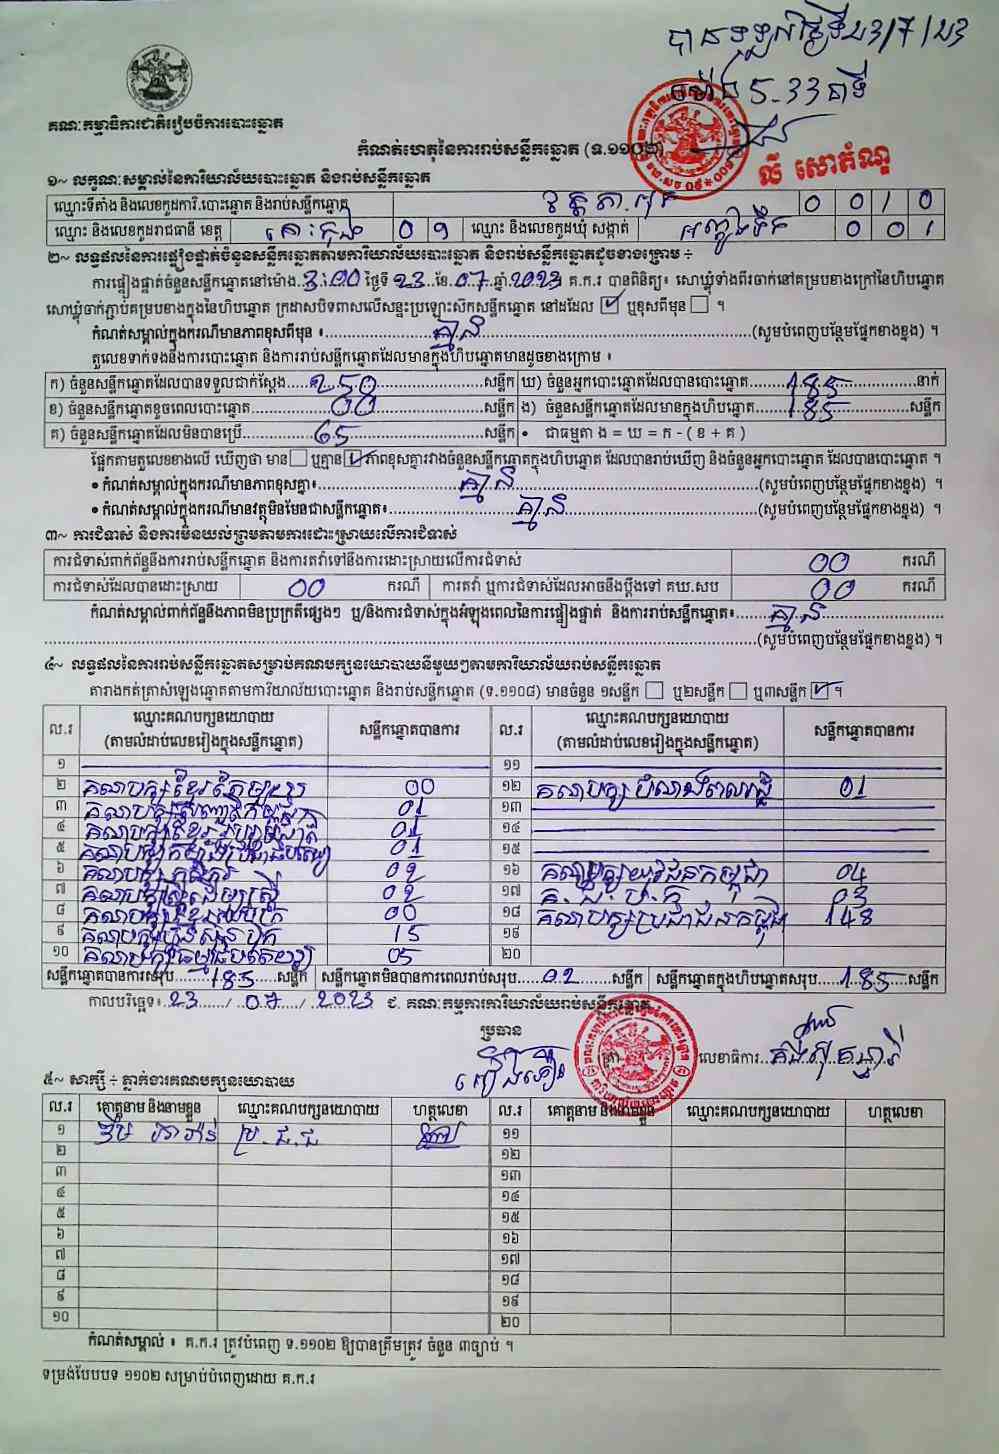 បានទទួលថ្ងៃទី23/7/23
ម៉ោង5.33នាទី
គណៈកម្មាធិការជាតិរៀបចំការបោះឆ្នោត
កំណត់ហេតុនៃការរាប់សន្លឹកឆ្នោត (ទ.១១០២)
លី សោភ័ណ្ឌ
១~ លក្ខណៈសម្គាល់នៃការិយាល័យបោះឆ្នោត និងរាប់សន្លឹកឆ្នោត
ឈ្មោះទីតាំង និងលេខកូដការិ.បោះឆ្នោត និងរាប់សន្លឹកឆ្នោត 0 0 1 0
ឈ្មោះ និងលេខកូដរាជធានី ខេត្ត កោះកុង 0 9 ឈ្មោះ និងលេខកូដឃុំ សង្កាត់ អណ្តូងទឹក 0 0 1
២~ លទ្ធផលនៃការផ្ទៀងផ្ទាត់ចំនួនសន្លឹកឆ្នោតតាមការិយាល័យបោះឆ្នោត និងរាប់សន្លឹកឆ្នោតដូចខាងក្រោម ÷
ការផ្ទៀងផ្ទាត់ចំនួនសន្លឹកឆ្នោតនៅម៉ោង..3:00 ថ្ងៃទី 23 ខែ.07 ឆ្នាំ2023 គ.ក.រ បានពិនិត្យ៖ សោឃ្លុំទាំងពីរចាក់នៅគម្របខាងក្រៅនៃហិបឆ្នោត
សោឃ្លុំចាក់ភ្ជាប់គម្របខាងក្នុងនៃហិបឆ្នោត ក្រដាសបិទពាសលើសន្ទះប្រឡោះសឹកសន្លឹកឆ្នោត នៅដដែល ☑ ឬខុសពីមុន ☐ ។
កំណត់សម្គាល់ក្នុងករណីមានភាពខុសពីមុន ៖ គ្មាន (សូមបំពេញបន្ថែមផ្នែកខាងខ្នង) ។
តួលេខទាក់ទងនឹងការបោះឆ្នោត និងការរាប់សន្លឹកឆ្នោតដែលមានក្នុងហិបឆ្នោតមានដូចខាងក្រោម ៖
ក) ចំនួនសន្លឹកឆ្នោតដែលបានទទួលជាក់ស្តែង 250 សន្លឹក ឃ) ចំនួនអ្នកបោះឆ្នោតដែលបានបោះឆ្នោត 185 នាក់
ខ) ចំនួនសន្លឹកឆ្នោតខូចពេលបោះឆ្នោត 00 សន្លឹក ង) ចំនួនសន្លឹកឆ្នោតដែលមានក្នុងហិបឆ្នោត 185 សន្លឹក
គ) ចំនួនសន្លឹកឆ្នោតដែលមិនបានប្រើ 65 សន្លឹក • ជាធម្មតា ង = ឃ = ក - ( ខ + គ )
ផ្អែកតាមតួលេខខាងលើ ឃើញថា មាន ☐ ឬគ្មាន ☑ ភាពខុសគ្នារវាងចំនួនសន្លឹកឆ្នោតក្នុងហិបឆ្នោត ដែលបានរាប់ឃើញ និងចំនួនអ្នកបោះឆ្នោត ដែលបានបោះឆ្នោត ។
• កំណត់សម្គាល់ក្នុងករណីមានភាពខុសគ្នា៖ គ្មាន (សូមបំពេញបន្ថែមផ្នែកខាងខ្នង) ។
• កំណត់សម្គាល់ក្នុងករណីមានវត្ថុមិនមែនជាសន្លឹកឆ្នោត៖ គ្មាន (សូមបំពេញបន្ថែមផ្នែកខាងខ្នង) ។
៣~ ការជំទាស់ និងការមិនយល់ព្រមតាមការដោះស្រាយលើការជំទាស់
ការជំទាស់ពាក់ព័ន្ធនឹងការរាប់សន្លឹកឆ្នោត និងការតវ៉ាទៅនឹងការដោះស្រាយលើការជំទាស់ 00 ករណី
ការជំទាស់ដែលបានដោះស្រាយ 00 ករណី ការតវ៉ា ឬការជំទាស់ដែលអាចនឹងប្តឹងទៅ គឃ.សប 00 ករណី
កំណត់សម្គាល់ពាក់ព័ន្ធនឹងភាពមិនប្រក្រតីផ្សេងៗ ឬ/និងការជំទាស់ក្នុងអំឡុងពេលនៃការផ្ទៀងផ្ទាត់ និងការរាប់សន្លឹកឆ្នោត៖ គ្មាន
(សូមបំពេញបន្ថែមផ្នែកខាងខ្នង) ។
៤~ លទ្ធផលនៃការរាប់សន្លឹកឆ្នោតសម្រាប់គណបក្សនយោបាយនីមួយៗតាមការិយាល័យរាប់សន្លឹកឆ្នោត
តារាងកត់ត្រាសំឡេងឆ្នោតតាមការិយាល័យបោះឆ្នោត និងរាប់សន្លឹកឆ្នោត (ទ.១១០៨) មានចំនួន ១សន្លឹក ☐ ឬ២សន្លឹក ☐ ឬ៣សន្លឹក ☑ ។
ល.រ ឈ្មោះគណបក្សនយោបាយ (តាមលំដាប់លេខរៀងក្នុងសន្លឹកឆ្នោត) សន្លឹកឆ្នោតបានការ ល.រ ឈ្មោះគណបក្សនយោបាយ (តាមលំដាប់លេខរៀងក្នុងសន្លឹកឆ្នោត) សន្លឹកឆ្នោតបានការ
១ ១១
២ គណបក្សខ្មែរតែមួយ 00 ១២ គណបក្ស 01
៣ គណបក្ស 01 ១៣
៤ គណបក្សខ្មែរ 01 ១៤
៥ គណបក្សកម្លាំងប្រជាធិបតេយ្យ 01 ១៥
៦ គណបក្ស 02 ១៦ គណបក្សយុវជនកម្ពុជា 04
៧ គណបក្សស្ត្រីដើម្បីស្ត្រី 02 ១៧ គ.ជ.ប.ក 03
៨ គណបក្ស 00 ១៨ គណបក្សប្រជាជនកម្ពុជា 148
៩ គណបក្សហ្វ៊ុនស៊ិនប៉ិច 15 ១៩
១០ គណបក្សធម្មាធិបតេយ្យ 05 ២០
សន្លឹកឆ្នោតបានការសរុប 185 សន្លឹក សន្លឹកឆ្នោតមិនបានការពេលរាប់សរុប 02 សន្លឹក សន្លឹកឆ្នោតក្នុងហិបឆ្នោតសរុប 185 សន្លឹក
កាលបរិច្ឆេទ៖ 23 / 07 / 2023 ជ. គណៈកម្មការការិយាល័យរាប់សន្លឹកឆ្នោត
ប្រធាន
លេខាធិការ
៥~ សាក្សី ÷ ភ្នាក់ងារគណបក្សនយោបាយ
ល.រ គោត្តនាម និងនាមខ្លួន ឈ្មោះគណបក្សនយោបាយ ហត្ថលេខា ល.រ គោត្តនាម និងនាមខ្លួន ឈ្មោះគណបក្សនយោបាយ ហត្ថលេខា
១ ប្រ.ជ.ជ ១១
២ ១២
៣ ១៣
៤ ១៤
៥ ១៥
៦ ១៦
៧ ១៧
៨ ១៨
៩ ១៩
១០ ២០
កំណត់សម្គាល់ ៖ គ.ក.រ ត្រូវបំពេញ ទ.១១០២ ឱ្យបានត្រឹមត្រូវ ចំនួន ៣ច្បាប់ ។
ទម្រង់បែបបទ ១១០២ សម្រាប់បំពេញដោយ គ.ក.រ